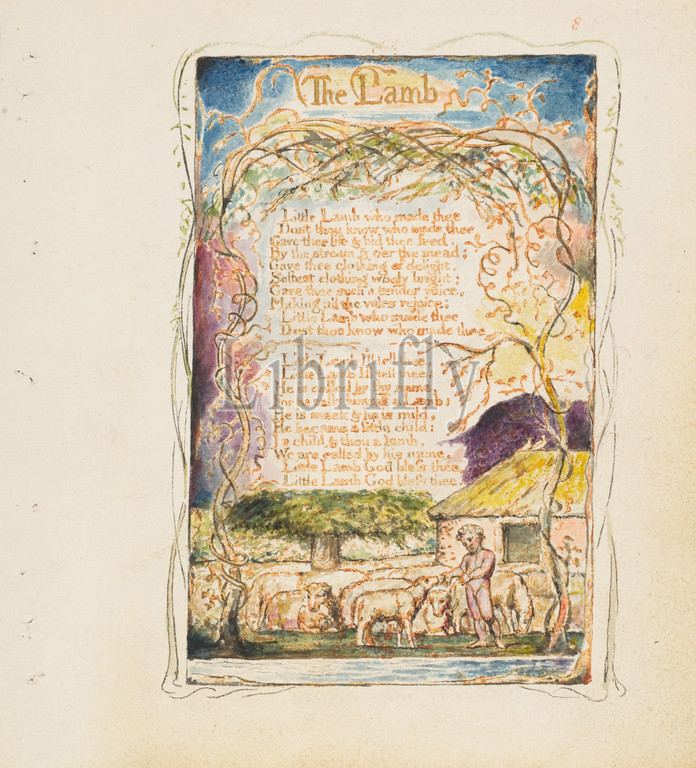 8
The Lamb
Little Lamb who made thee
Dost thou know who made thee
Gave thee life & bid thee feed.
By the stream & o'er the mead;
Gave thee clothing of delight,
Softest clothing wooly bright;
Gave thee such a tender voice,
Making all the vales rejoice:
Little Lamb who made thee
Dost thou know who made thee
Little Lamb I'll tell thee,
Little Lamb I'll tell thee;
He is called by thy name,
For he calls himself a Lamb:
He is meek & he is mild,
He became a little child:
I a child & thou a lamb,
We are called by his name.
Little Lamb God bless thee,
Little Lamb God bless thee.
Librifly